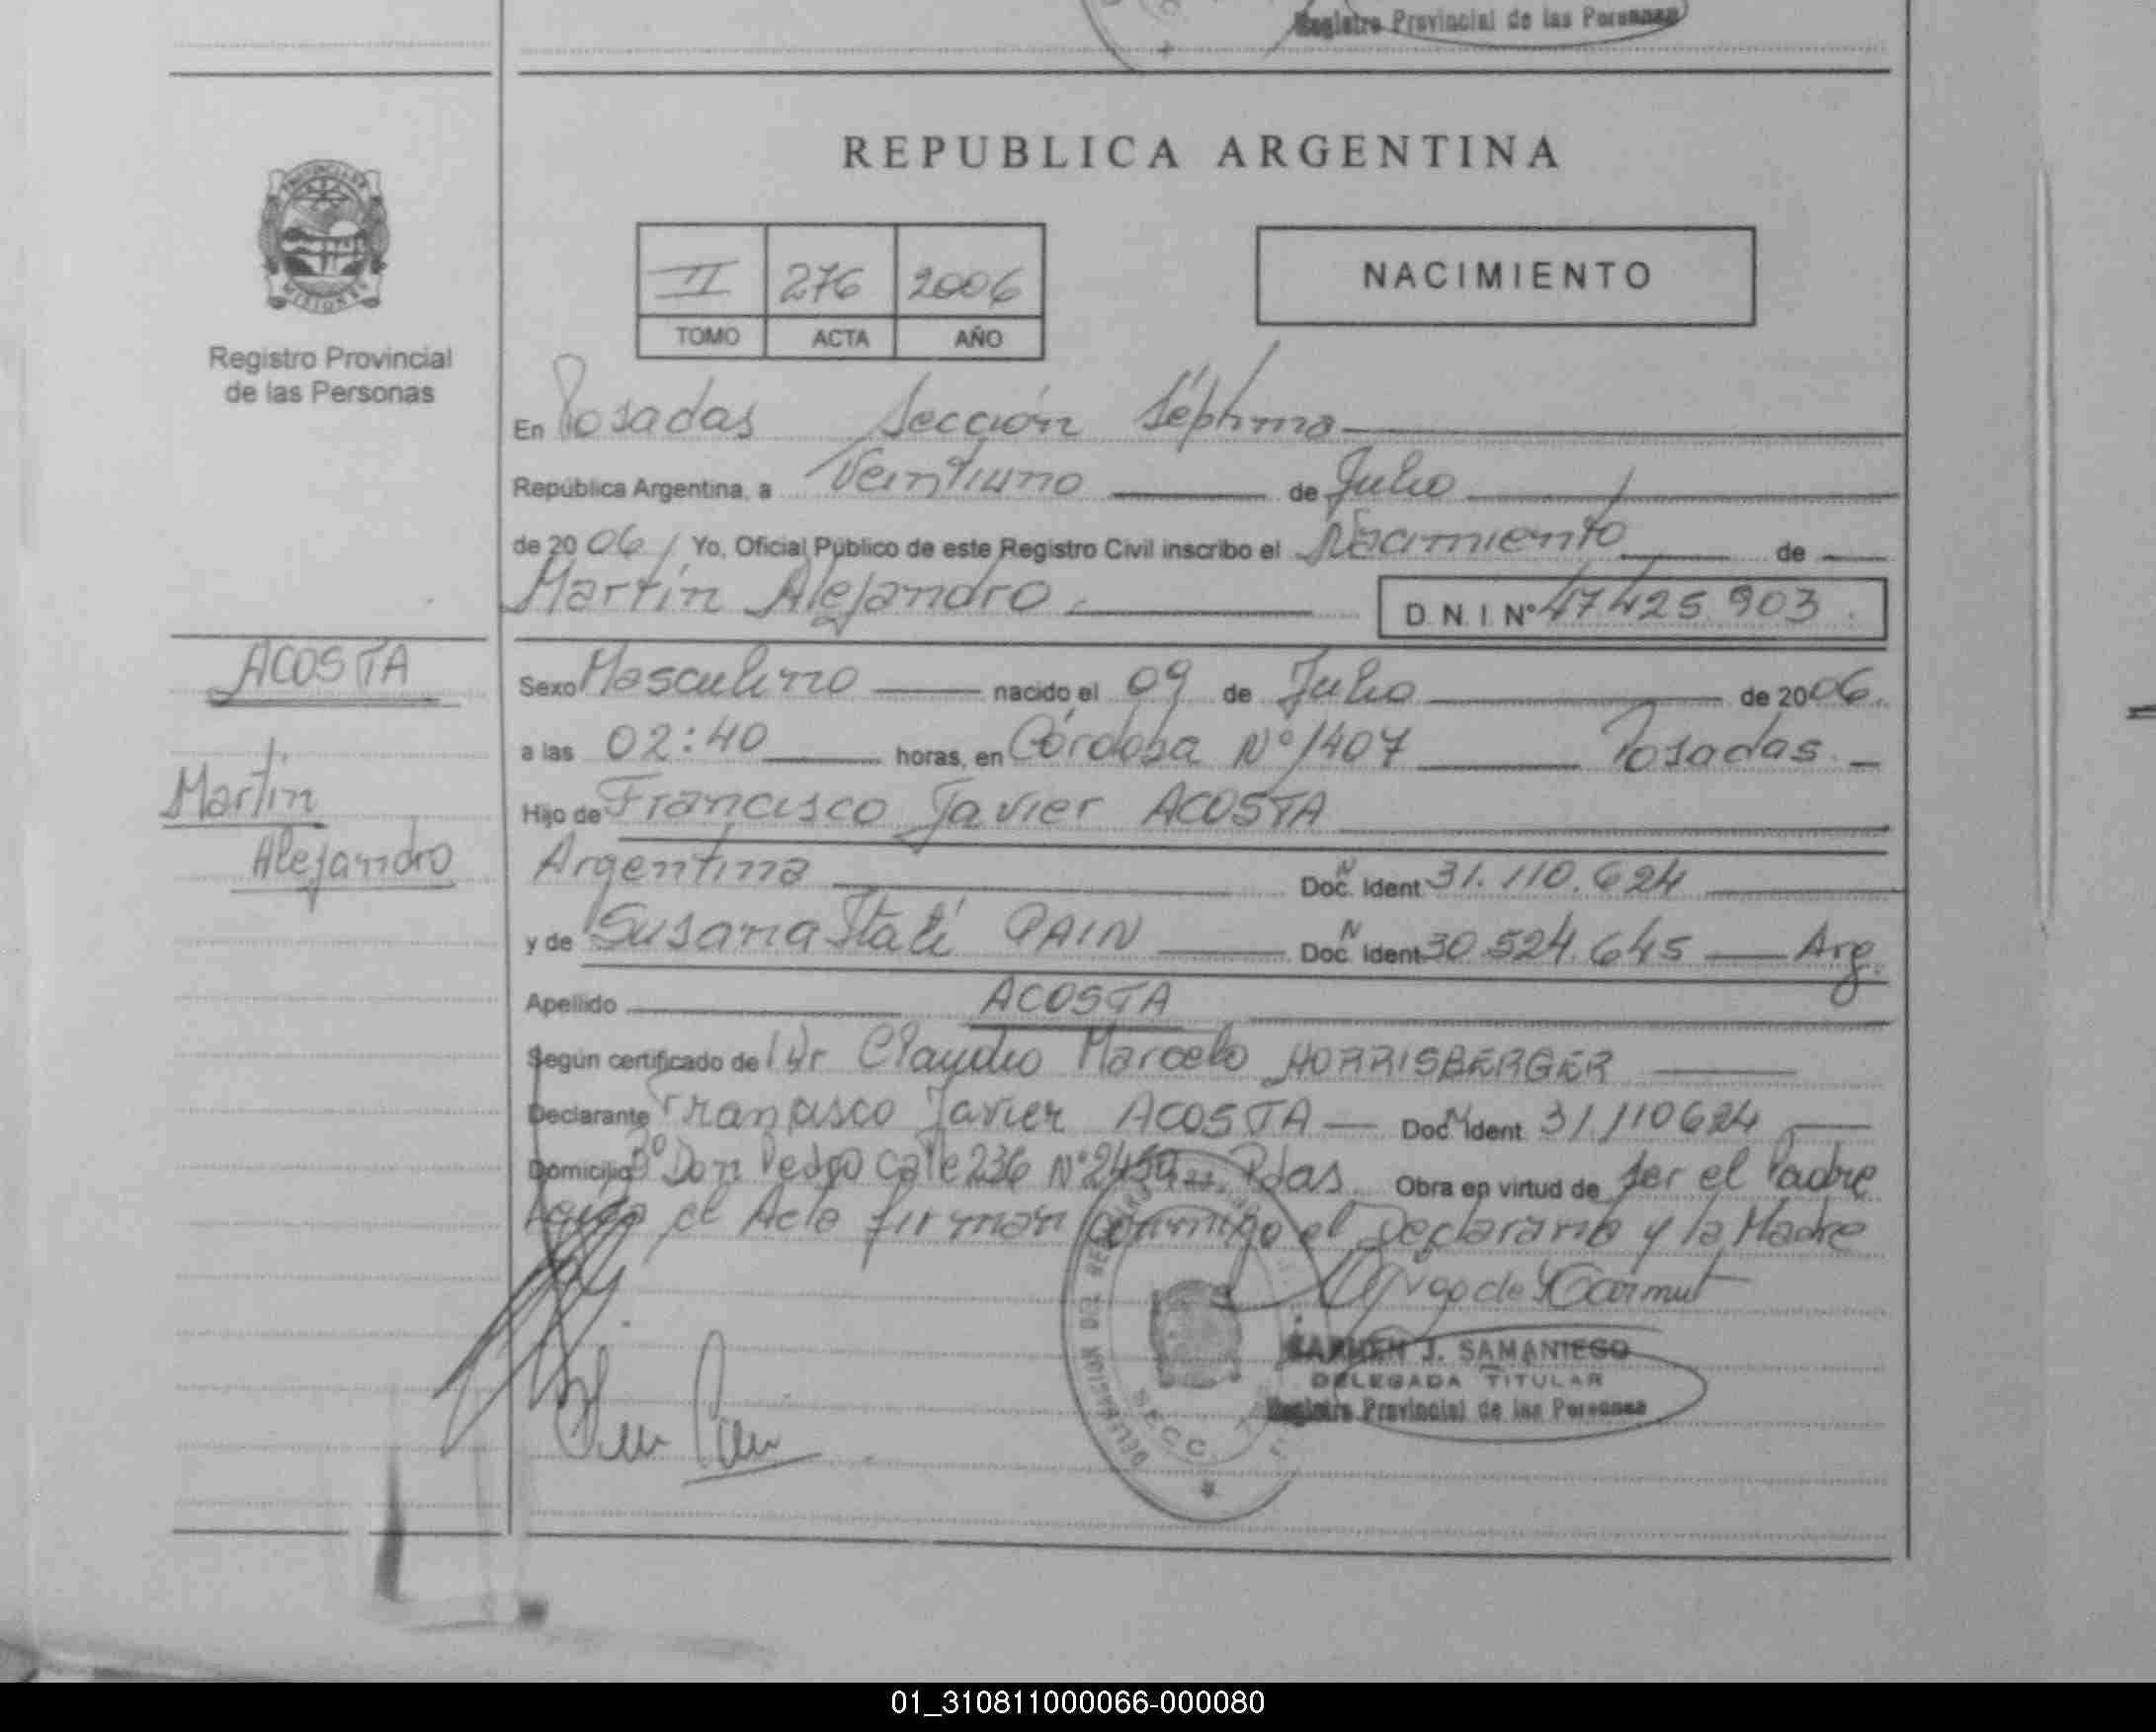 Registro Provincial de las Personas
REPUBLICA ARGENTINA
PROVINCIA DE
MISIONES
Registro Provincial
de las Personas
II 276 2006
TOMO ACTA AÑO
NACIMIENTO
En Posadas Sección Séptima
República Argentina, a Veintiuno de Julio
de 2006 Yo, Oficial Público de este Registro Civil inscribo el Nacimiento de
Martín Alejandro D. N. I. Nº 47425.903.
ACOSTA
Martín
Alejandro
Sexo Masculino nacido el 09 de Julio de 2006.
a las 02:40 horas, en Córdoba Nº 1407 Posadas.
Hijo de Francisco Javier ACOSTA
Argentina Doc. N Ident 31.110.624
y de Susana Itatí PAIN Doc. N Ident 30.524.645 Arg.
Apellido ACOSTA
Según certificado de Dr Claudio Marcelo HORRISBERGER
Declarante Francisco Javier ACOSTA Doc. N Ident 31.110624
Domicilio Bº Don Pedro Calle 236 Nº 2450 Pdas. Obra en virtud de ser el Padre
el Acta firman conmigo el Declarante y la Madre
DELEGACION DEL
SECC.
CARMEN J. SAMANIEGO
DELEGADA TITULAR
Registro Provincial de las Personas
01_310811000066-000080